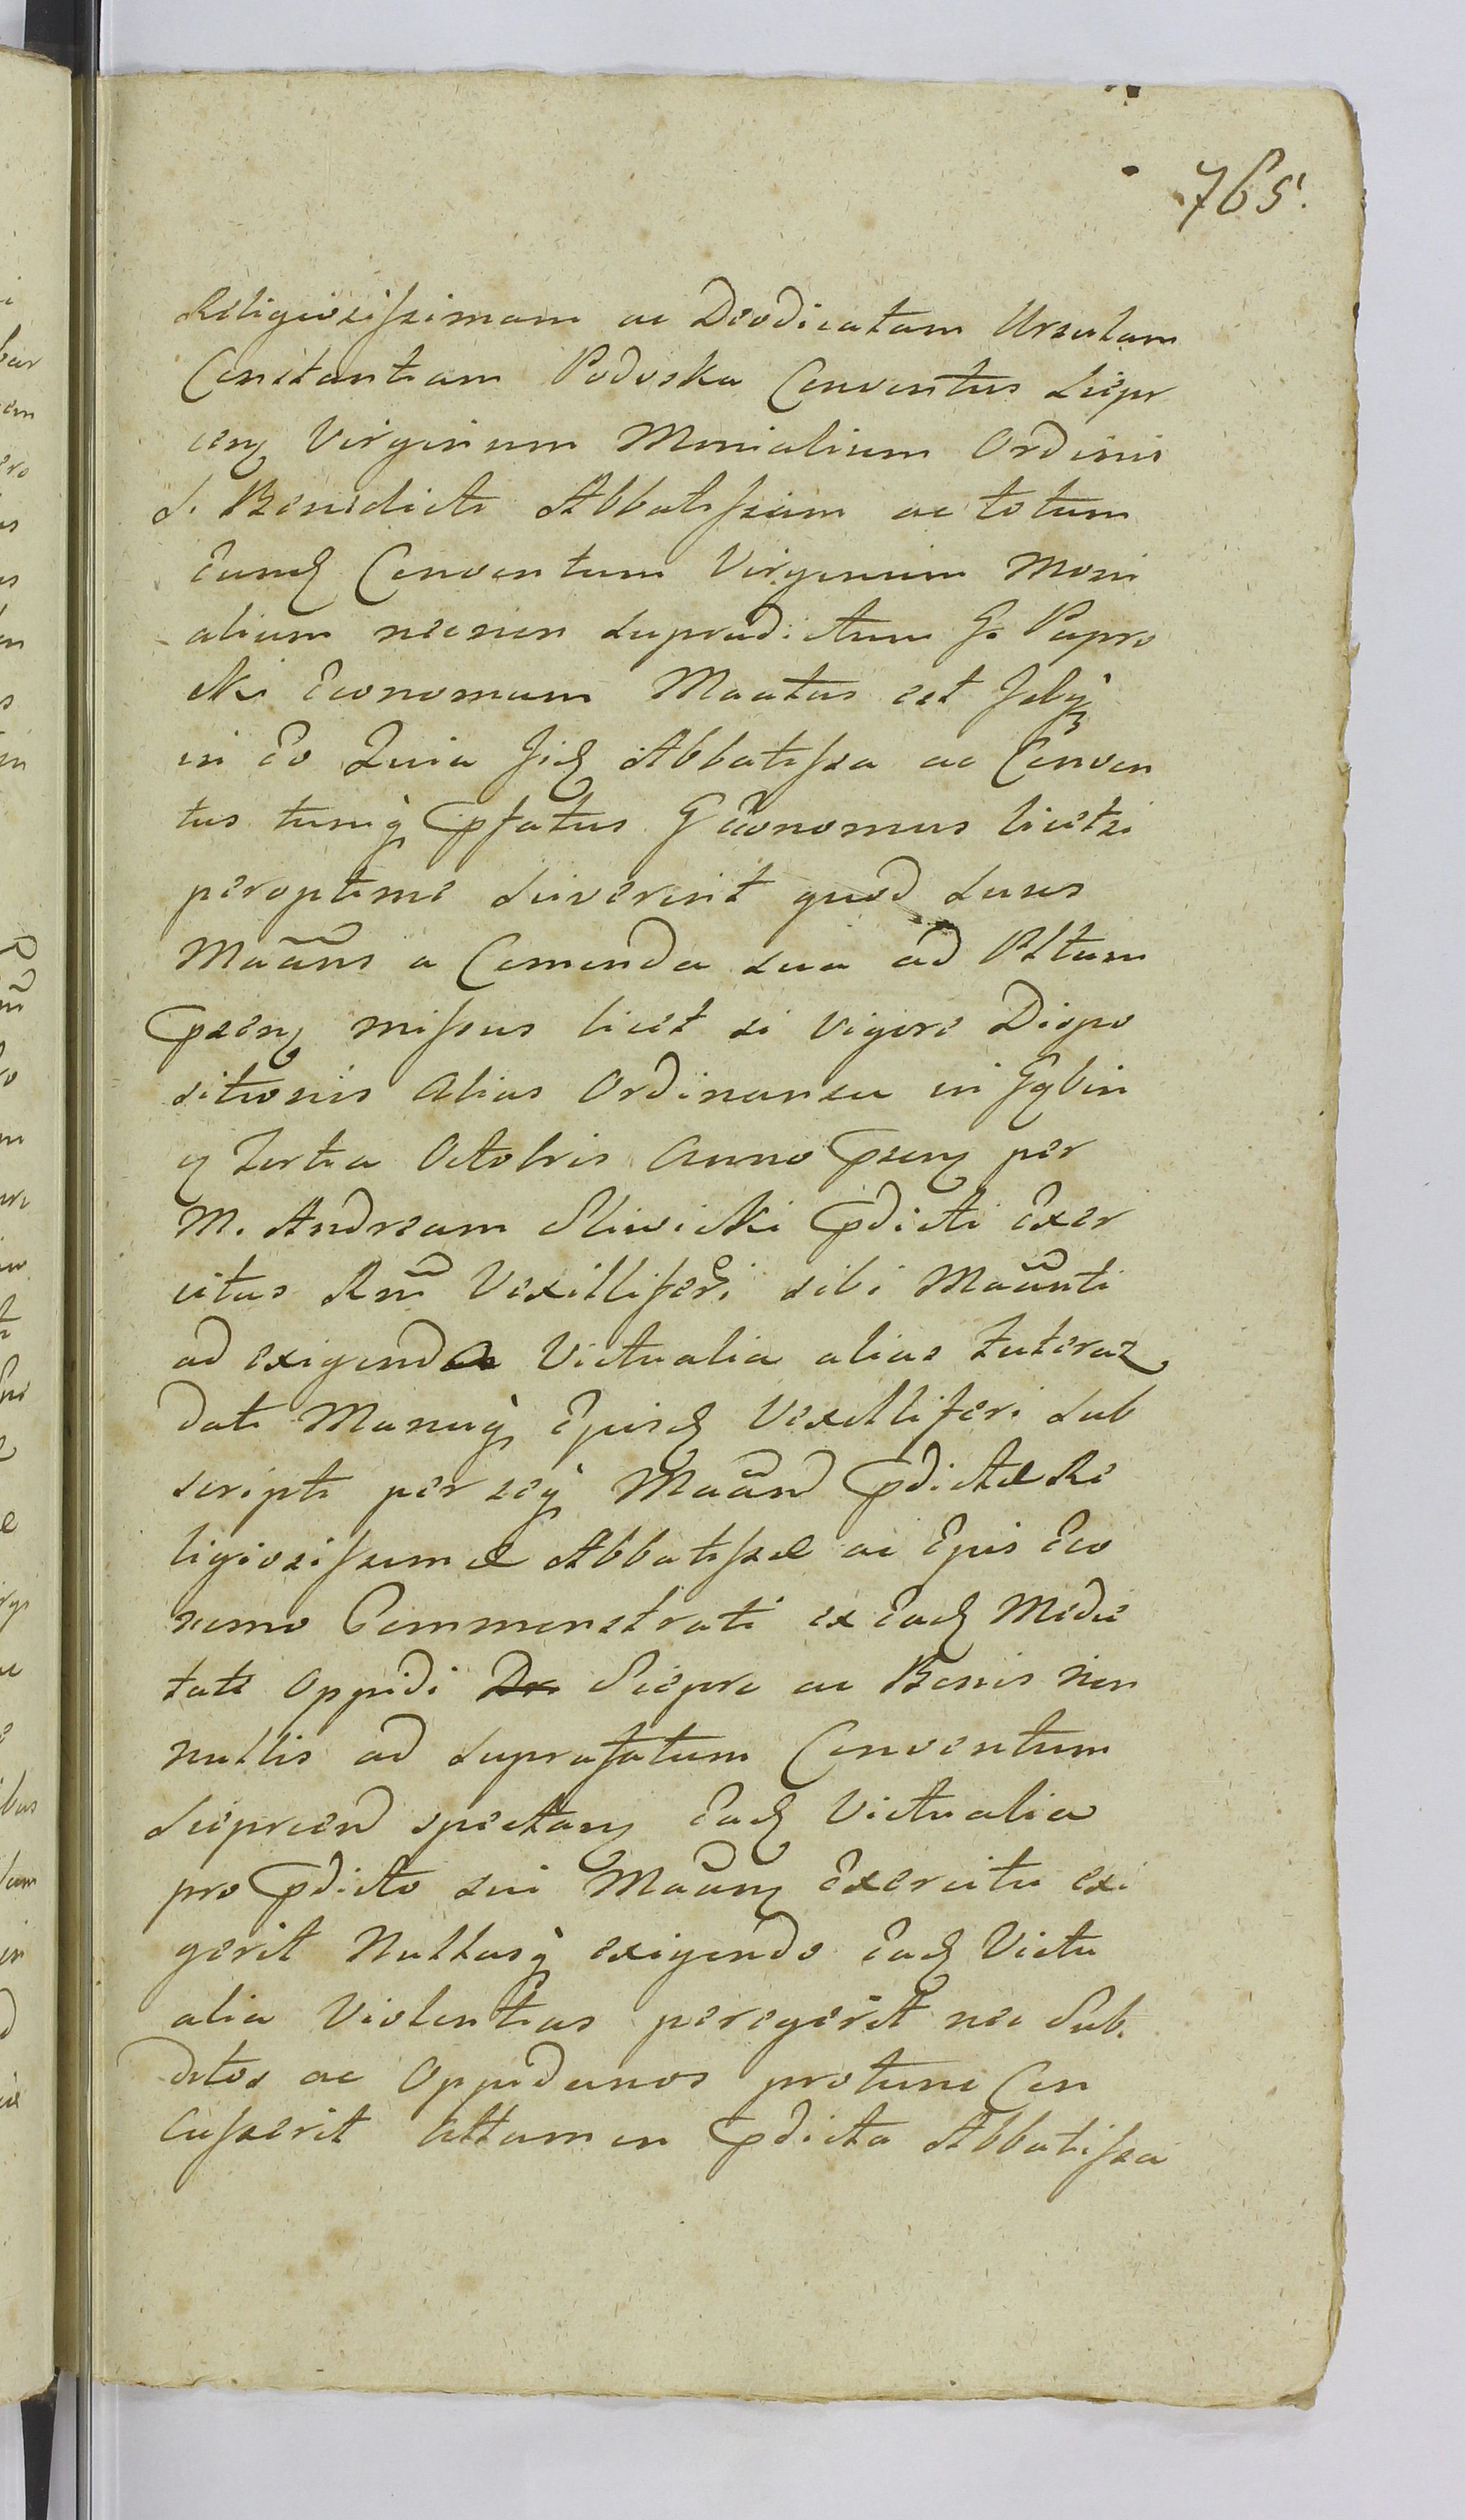 765.
Religiosissimam ac Deodicatam Ursulam
Constantiam Podoska Conventus Siepr
ceñ Virginum Monialium Ordinis
S. Benedicti Abbatissam ac totum
Eund Conventum Virginum Moni
alium necnon supradictum G. Papro
cki Economum Maatus est
in Eo Quia Abbatissa ac Conven
tus tumq pfatus G Economus licet si
peroptime sciverint quod suus
Maãns a Comenda sua ad Pltum
pseñ missus licet si vigore Dispo
sitionis alias Ordinansu in Gąbin
y tertia Octobris Anno pseñ per
M. Andream Sliwicki pdicti Exer
citus Rm̃ Vexilliferi sibi Maãnti
ad exigenda Victualia alias Futeraz
dati Manuq Ejusd Vexilliferi sub
scripti per seq Maãnd pdictæ Re
ligiosissimæ Abbatissæ ac Ejus Eco
nomo Commonstrati ex Ead Medie
tate Oppidi Sieprc ac Bonis non
nullis ad suprafatum Conventum
Sieprcen spectañ Ead Victualia
pro pdicto sui Maañ Exercitu exi
gerit Nullasq exigendo Ead Victu
alia Violentias peregerit nec Sub
ditos ac Oppidanos protunc Con
cusserit Attamen pdicta Abbatissa